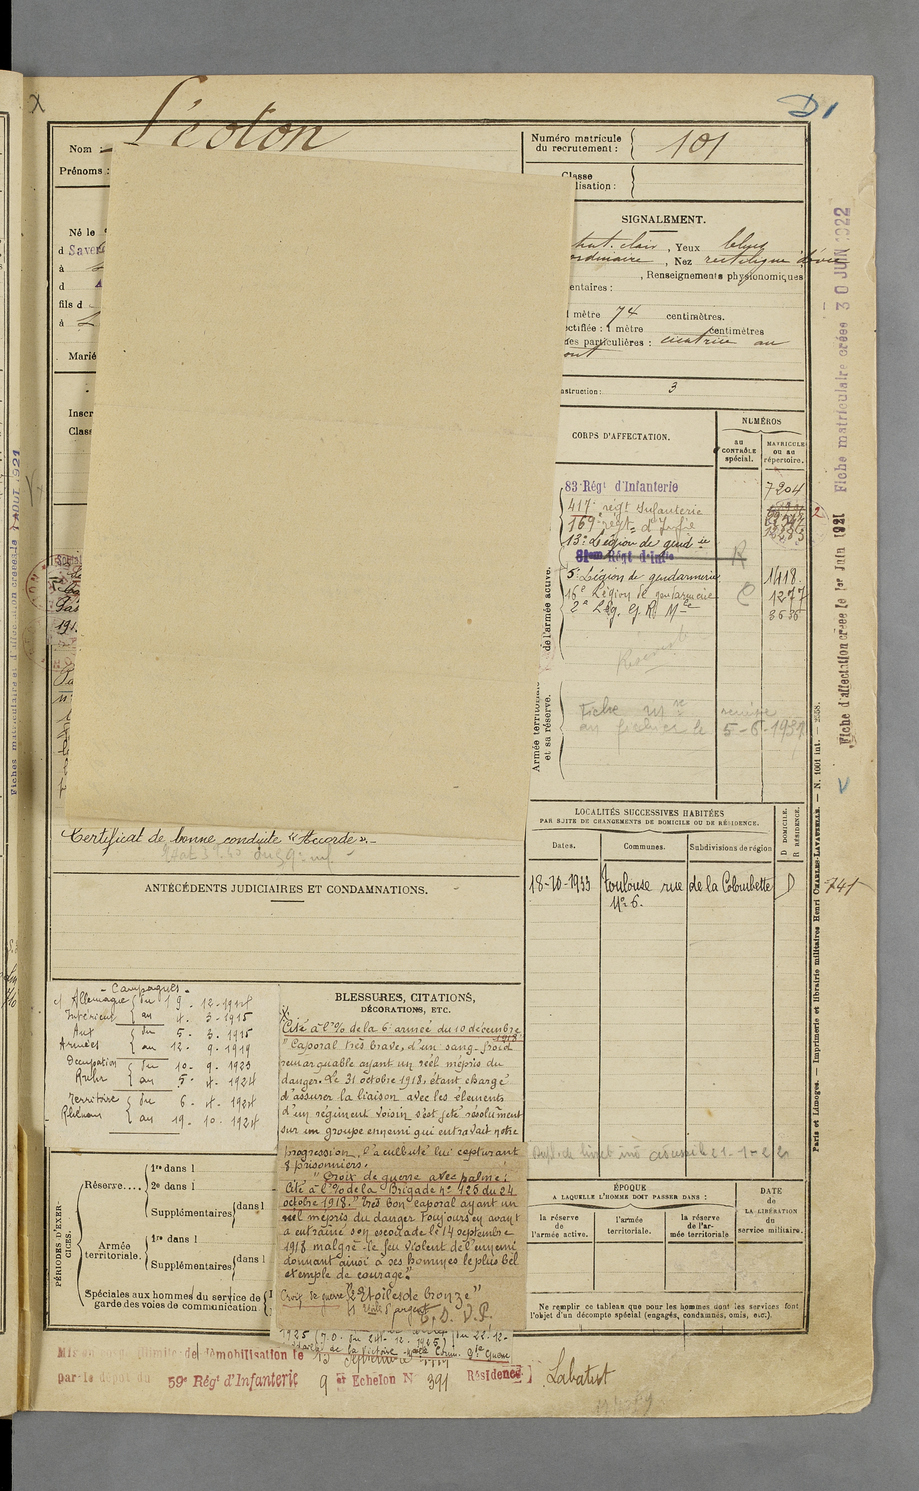 D1
Nom :
Prénoms :
Né le
d Saver
à
d
fils d
à
Marié
Inscr
Class
Numéro matricule
du recrutement : 101
Classe
lisation :
SIGNALEMENT.
chat. clair, Yeux bleus
ordinaire, Nez rectiligne dévié
, Renseignements physionomiques
entaires :
1 mètre 74 centimètres.
ectifiée : 1 mètre centimètres
es particulières : cicatrice au
ont
nstruction : 3
CORPS D'AFFECTATION.
NUMÉROS
au
CONTRÔLE
spécial.
MATRICULE
ou au
répertoire.
83 Régt d'Infanterie 7204
417e régt Infanterie
169e régt d'Infie
13e Légion de gendie
81eme Régt d'Infie
5e Légion de gendarmerie 1418
16e Légion de gendarmerie C 1277
2e Lég. G. R. Mle 3636
de l'armée active.
Armée territoriale
et sa réserve.
Fiche mle remise
au fichier le 5-6-1931
Fiches matriculaire et d'affectation créées le 1 AOUT 1921
Fiche matriculaire créée 30 JUIN 1922
Fiche d'affectation créée le 1er Juin 1921
Certificat de bonne conduite "Accordé".
ANTÉCÉDENTS JUDICIAIRES ET CONDAMNATIONS.
LOCALITÉS SUCCESSIVES HABITÉES
PAR SUITE DE CHANGEMENTS DE DOMICILE OU DE RÉSIDENCE.
Dates.
Communes.
Subdivisions de région
D DOMICILE.
R RÉSIDENCE.
18-10-1933 Toulouse rue de la Colombette D 741
No 6.
Paris et Limoges. — Imprimerie et librairie militaires Henri CHARLES-LAVAUZELLE. — N. 1001 int.
- Campagnes -
c/ Allemagne { du 19-12-1914
Intérieur { au 4-3-1915
Aux { du 5-3-1915
Armées { au 12-9-1919
Occupation { du 10-9-1923
Ruhr { au 5-4-1924
Territoire { du 6-4-1924
Rhénan { au 19-10-1924
BLESSURES, CITATIONS,
DÉCORATIONS, ETC.
Cité à l'O/ de la 6e armée du 10 décembre
1918
"Caporal très brave, d'un sang-froid
remarquable ayant un réel mépris du
danger. Le 31 octobre 1918, étant chargé
d'assurer la liaison avec les éléments
d'un régiment voisin s'est jeté résolument
sur un groupe ennemi qui entravait notre
progression, l'a culbuté lui capturant
8 prisonniers.
"Croix de guerre avec palme"
Cité à l'O/ de la Brigade No 125 du 24
octobre 1918. "Très bon caporal ayant un
réel mépris du danger Toujours en avant
a entraîné son escouade le 14 septembre
1918 malgré le feu violent de l'ennemi
donnant ainsi à ses hommes le plus bel
exemple de courage."
Croix de guerre 2 Etoiles de bronze"
1 étoile d'argent
PÉRIODES D'EXER-
CICES.
Réserve....
1re dans l
2e dans l
Supplémentaires dans l
Armée
territoriale.
1re dans l
Supplémentaires dans l
Spéciales aux hommes du service de
garde des voies de communication
ÉPOQUE
A LAQUELLE L'HOMME DOIT PASSER DANS :
la réserve
de
l'armée active.
l'armée
territoriale.
la réserve
de l'ar-
mée territoriale
DATE
de
LA LIBÉRATION
du
service militaire.
Ne remplir ce tableau que pour les hommes dont les services font
l'objet d'un décompte spécial (engagés, condamnés, omis, etc.).
démobilisation le 13 Septembre
par le dépôt du 59e Régt d'Infanterie 9 e Echelon N 391 Résidence Labatut